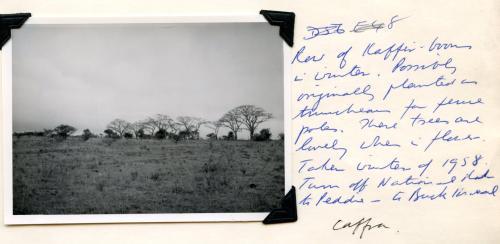 Row of Kaffir-booms
in winter. Possibly
originally planted as
truncheons for fence
poles. These trees are
lovely when in flower.
Taken winter of 1958.
Turn off National Road
to Peddie - to Buck Kraal
caffra.